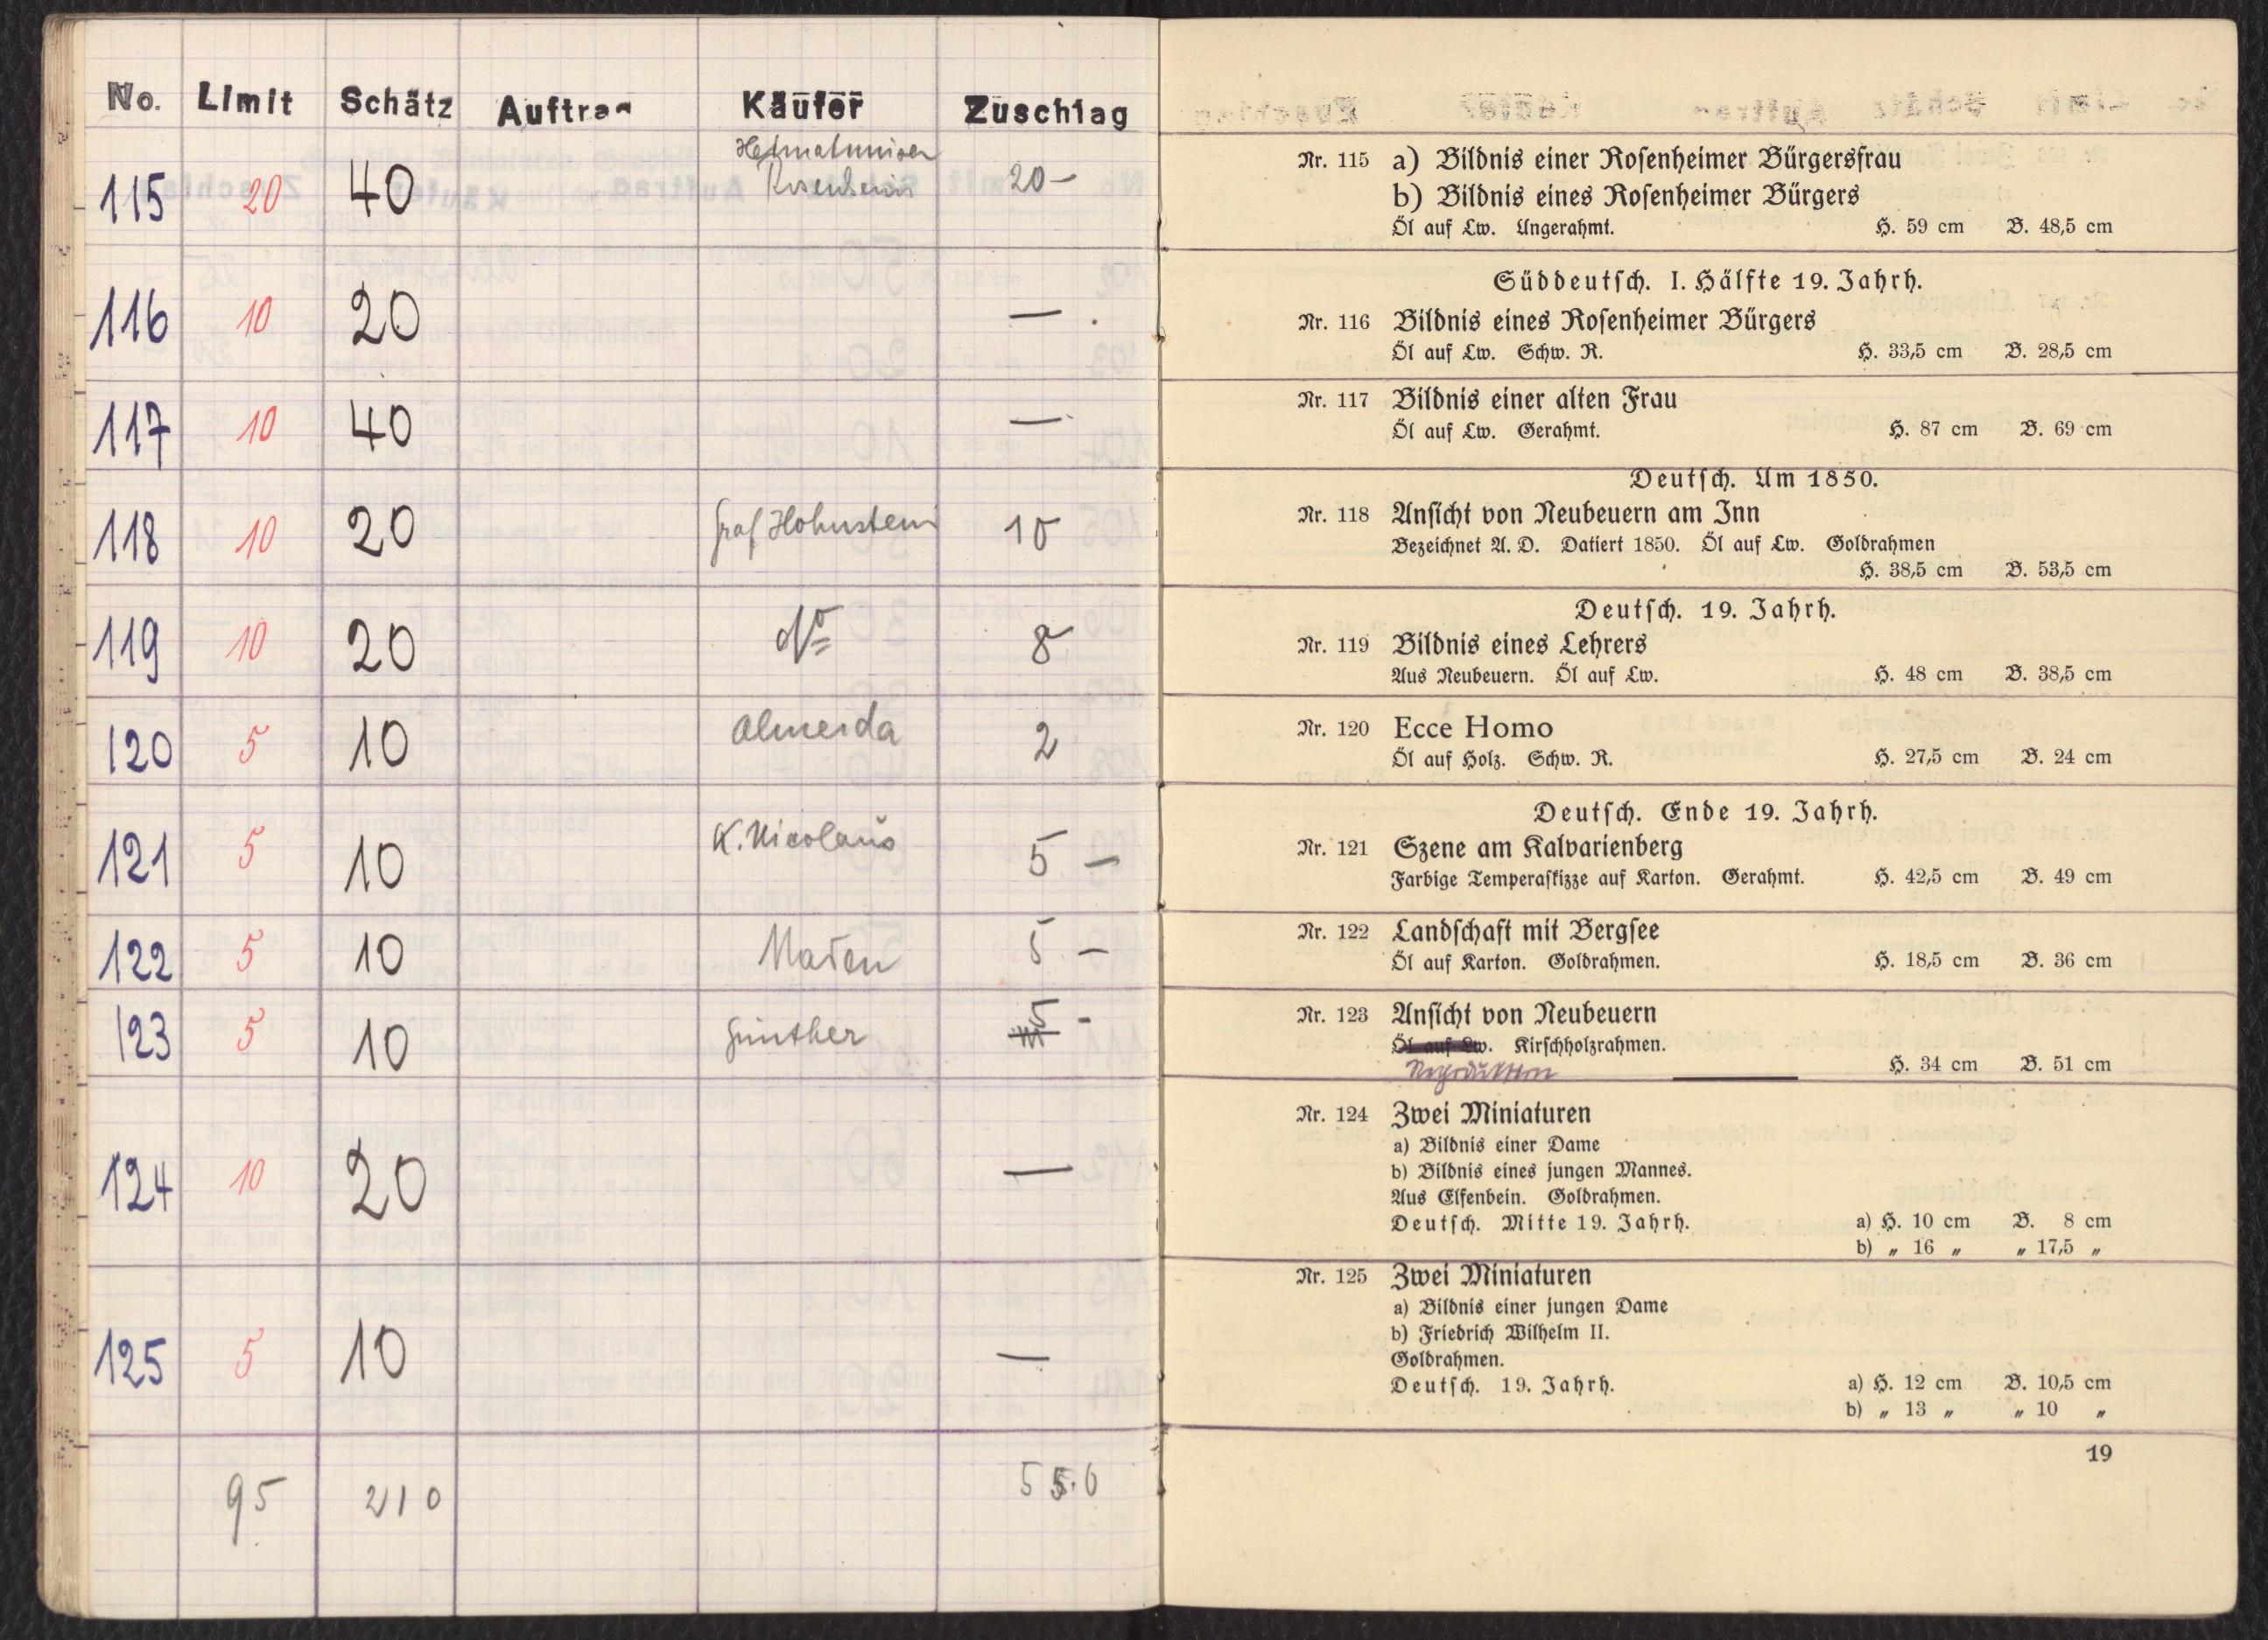 No. Limit Schätz Auftrag Käufer Zuschlag
115 20 40 Heimatmuseum Rosenheim 20 –
116 10 20 —
117 10 40 —
118 10 20 Graf Hohnstein 10
119 10 20 do 8
120 5 10 Almeida 2
121 5 10 K. Nicolaus 5 –
122 5 10 5 –
123 5 10 Günther 5 -
124 10 20 —
125 5 10 —
95 210
Nr. 115 a) Bildnis einer Rosenheimer Bürgersfrau
b) Bildnis eines Rosenheimer Bürgers
Öl auf Lw. Ungerahmt. H. 59 cm B. 48,5 cm
Süddeutsch. I. Hälfte 19. Jahrh.
Nr. 116 Bildnis eines Rosenheimer Bürgers
Öl auf Lw. Schw. R. H. 33,5 cm B. 28,5 cm
Nr. 117 Bildnis einer alten Frau
Öl auf Lw. Gerahmt. H. 87 cm B. 69 cm
Deutsch. Um 1850.
Nr. 118 Ansicht von Neubeuern am Inn
Bezeichnet A. D. Datiert 1850. Öl auf Lw. Goldrahmen
H. 38,5 cm B. 53,5 cm
Deutsch. 19. Jahrh.
Nr. 119 Bildnis eines Lehrers
Aus Neubeuern. Öl auf Lw. H. 48 cm B. 38,5 cm
Nr. 120 Ecce Homo
Öl auf Holz. Schw. R. H. 27,5 cm B. 24 cm
Deutsch. Ende 19. Jahrh.
Nr. 121 Szene am Kalvarienberg
Farbige Temperaskizze auf Karton. Gerahmt. H. 42,5 cm B. 49 cm
Nr. 122 Landschaft mit Bergsee
Öl auf Karton. Goldrahmen. H. 18,5 cm B. 36 cm
Nr. 123 Ansicht von Neubeuern
Öl auf Lw. Kirschholzrahmen.
Reproduktion H. 34 cm B. 51 cm
Nr. 124 Zwei Miniaturen
a) Bildnis einer Dame
b) Bildnis eines jungen Mannes.
Aus Elfenbein. Goldrahmen.
Deutsch. Mitte 19. Jahrh. a) H. 10 cm B. 8 cm
b) „ 16 „ „ 17,5 „
Nr. 125 Zwei Miniaturen
a) Bildnis einer jungen Dame
b) Friedrich Wilhelm II.
Goldrahmen.
Deutsch. 19. Jahrh. a) H. 12 cm B. 10,5 cm
b) „ 13 „ „ 10 „
19